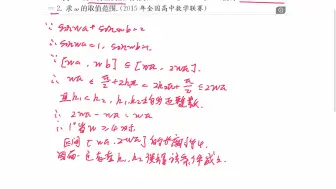 = 2. 求ω的取值范围. (2015年全国高中数学联赛)
∵ sinwa + sinwb = 2
∴ sinwa = 1, sinwb = 1.
∵ [wa, wb] ⊆ [wπ, 2wπ].
∴ wπ ≤ π/2 + 2k₁π < 2k₂π + π/2 ≤ 2wπ
且k₁<k₂, k₁, k₂均为正整数.
∵ 2wπ - wπ =
∴ 1°当w≥4时.
区间[wπ, 2wπ]的长度
k₁, k₂使得该条件成立.